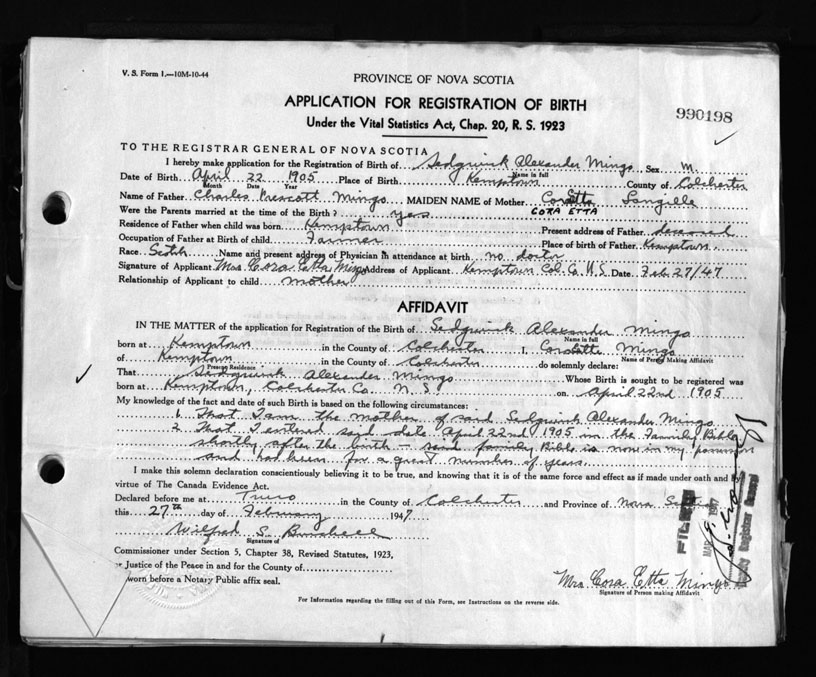 V. S. Form 1.—10M-10-44
PROVINCE OF NOVA SCOTIA
APPLICATION FOR REGISTRATION OF BIRTH
990198
Under the Vital Statistics Act, Chap. 20, R. S. 1923
TO THE REGISTRAR GENERAL OF NOVA SCOTIA
I hereby make application for the Registration of Birth of Sedgwick Alexander Mingo Sex M.
Name in full
Date of Birth April 22 1905 Place of Birth Kemptown County of Colchester
Month Date Year
Name of Father Charles Prescott Mingo MAIDEN NAME of Mother Coraetta Langille
Were the Parents married at the time of the Birth? yes CORA ETTA
Residence of Father when child was born Kemptown Present address of Father deceased
Occupation of Father at Birth of child Farmer Place of birth of Father Kemptown
Race Scotch Name and present address of Physician in attendance at birth no doctor
Signature of Applicant Mrs Cora Etta Mingo Address of Applicant Kemptown Col. Co. N.S. Date Feb 27/47
Relationship of Applicant to child mother
AFFIDAVIT
IN THE MATTER of the application for Registration of the Birth of Sedgwick Alexander Mingo
Name in full
born at Kemptown in the County of Colchester I, Coraetta Mingo
Name of Person Making Affidavit
of Kemptown in the County of Colchester do solemnly declare:
Present Residence
That Sedgwick Alexander Mingo Whose Birth is sought to be registered was
born at Kemptown, Colchester Co. N.S. on April 22nd 1905
My knowledge of the fact and date of such Birth is based on the following circumstances:
1. That I am the mother of said Sedgwick Alexander Mingo
2. That I entered said date April 22nd 1905 in the Family Bible
shortly after the birth – said family Bible is now in my possession
and had been for a great number of years.
I make this solemn declaration conscientiously believing it to be true, and knowing that it is of the same force and effect as if made under oath and by
virtue of The Canada Evidence Act.
Declared before me at Truro in the County of Colchester and Province of Nova Scotia
this 27th day of February 1947
Wilfred S.
Signature of
Commissioner under Section 5, Chapter 38, Revised Statutes, 1923,
or Justice of the Peace in and for the County of
worn before a Notary Public affix seal.
FILED
Mrs Cora Etta Mingo
Signature of Person making Affidavit
For Information regarding the filling out of this Form, see Instructions on the reverse side.